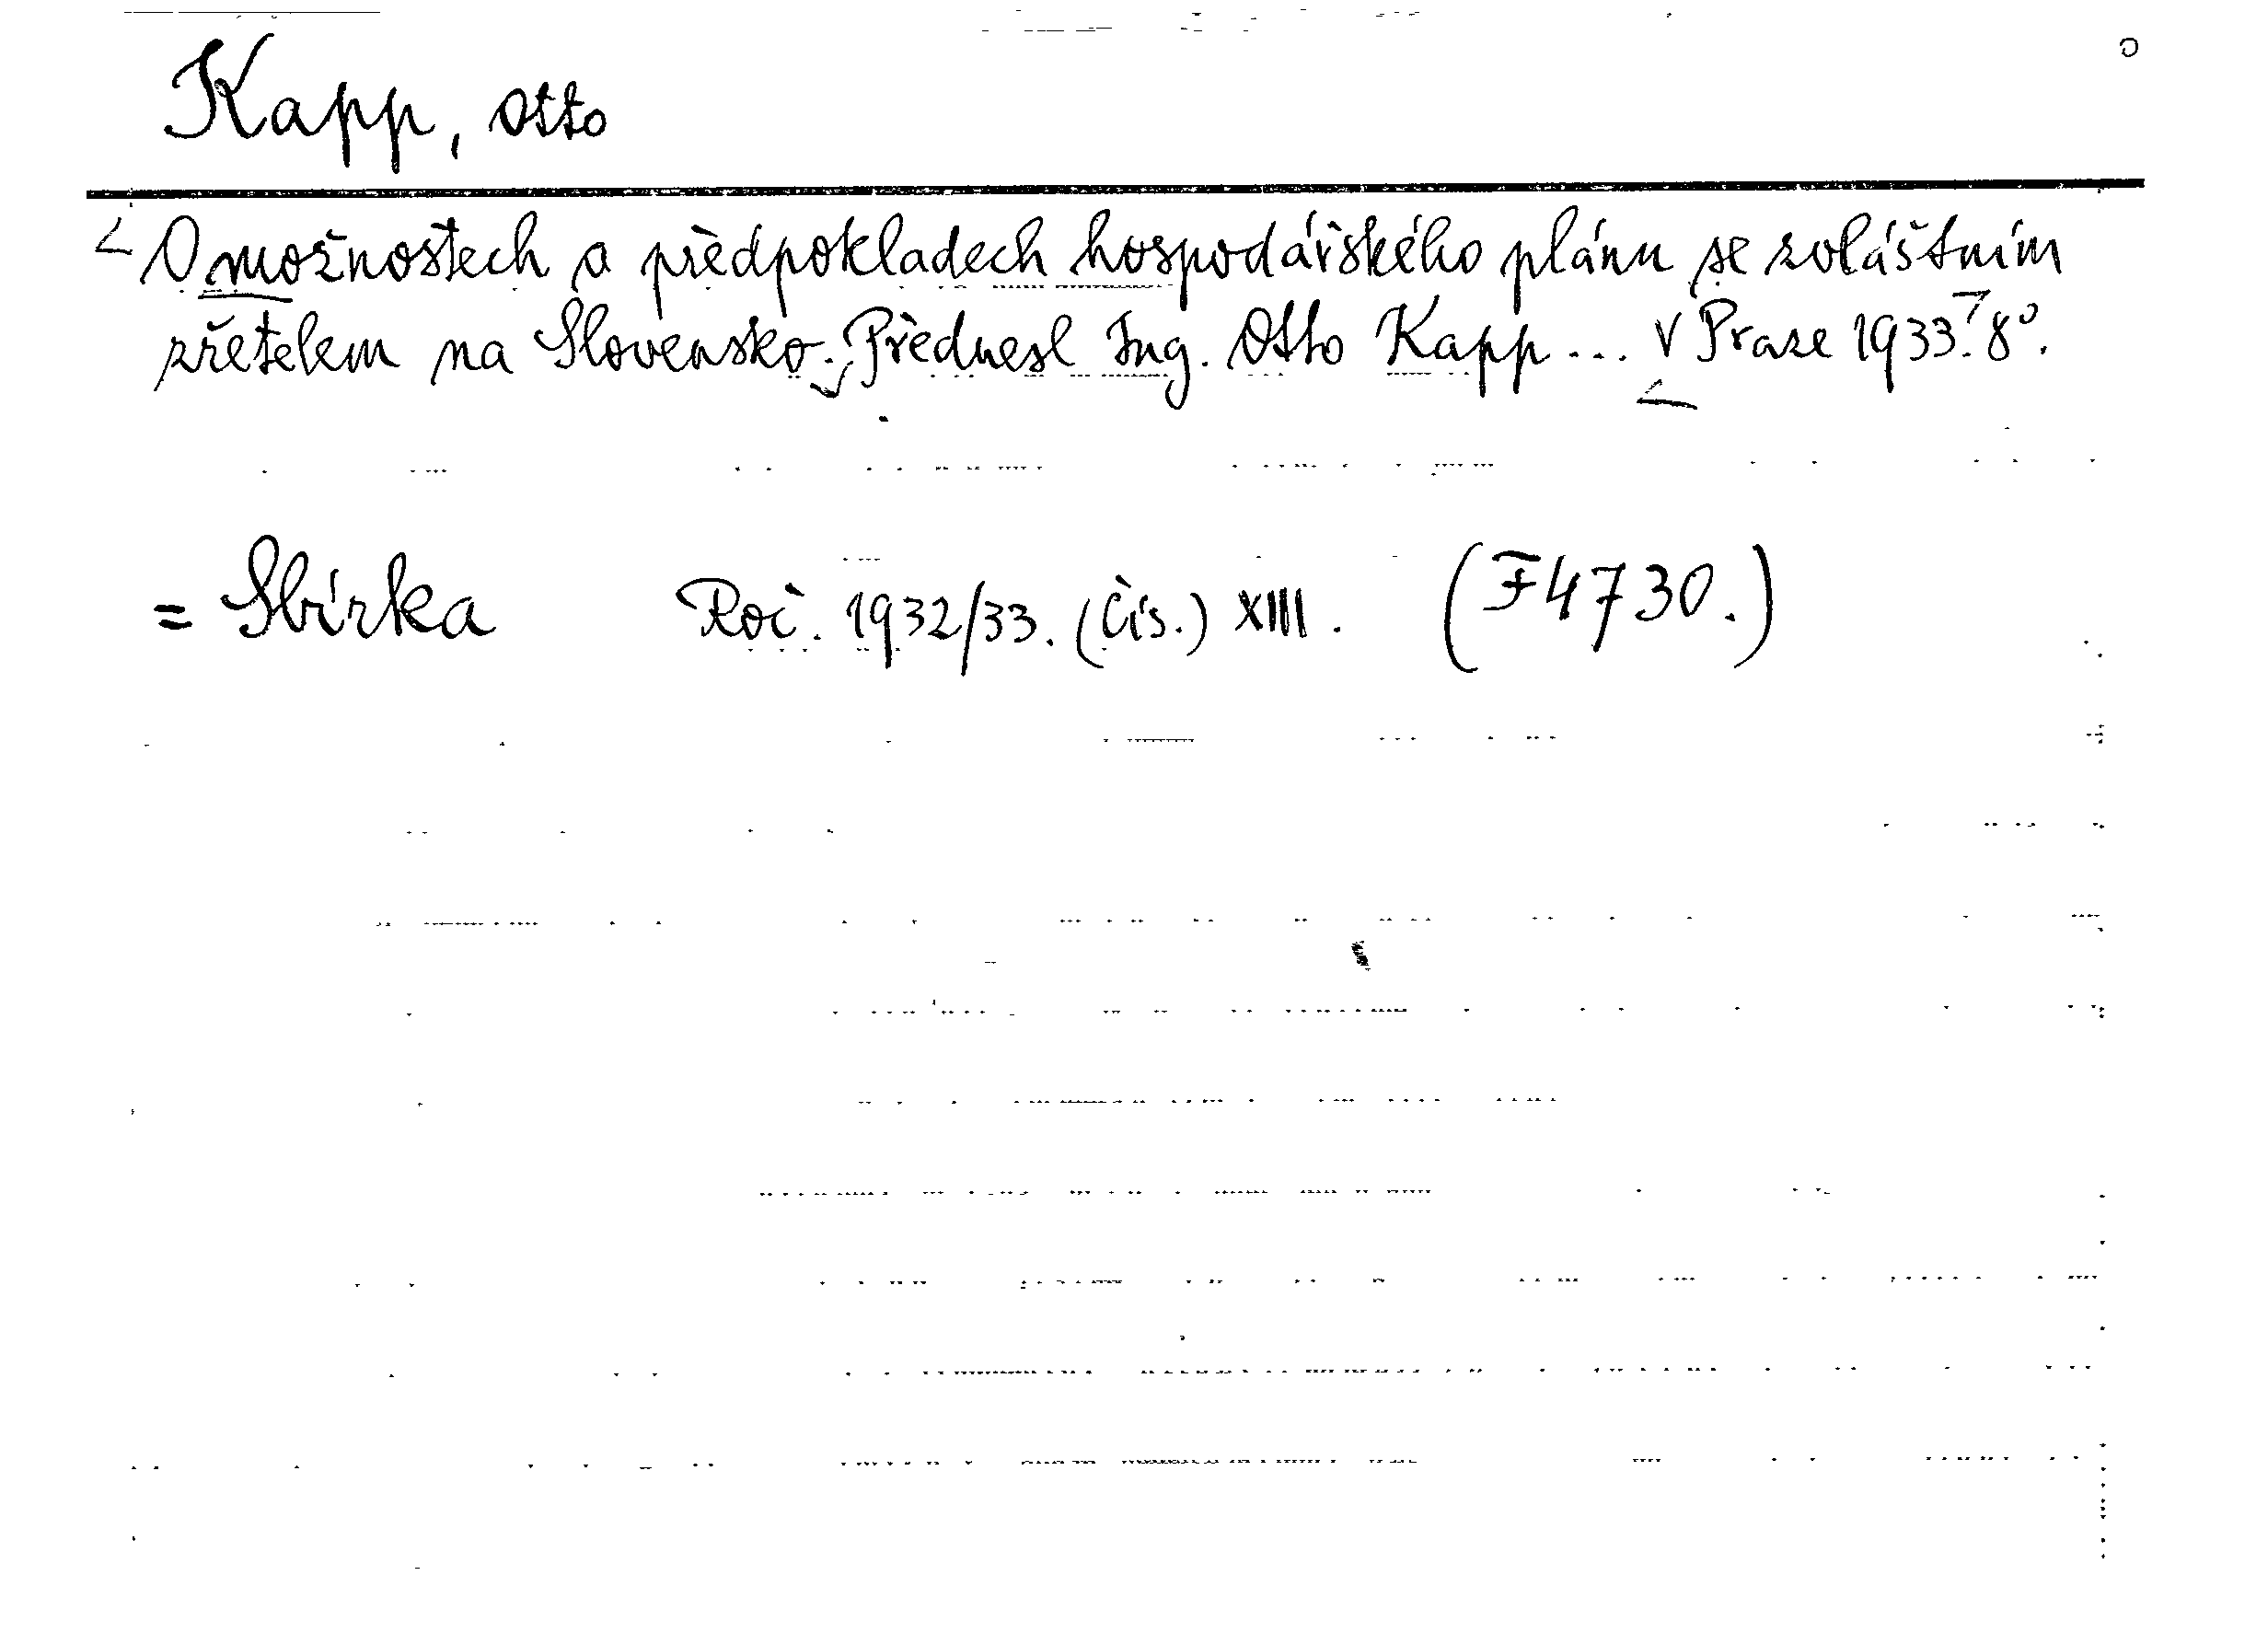 Kapp, Otto
O možnostech a předpokladech hospodářského plánu se zvláštním
zřetelem na Slovensko. Přednesl Ing. Otto Kapp ... V Praze 1933. 8°.
= Sbírka Roč. 1932/33. (Čís.) XIII. (F4730.)